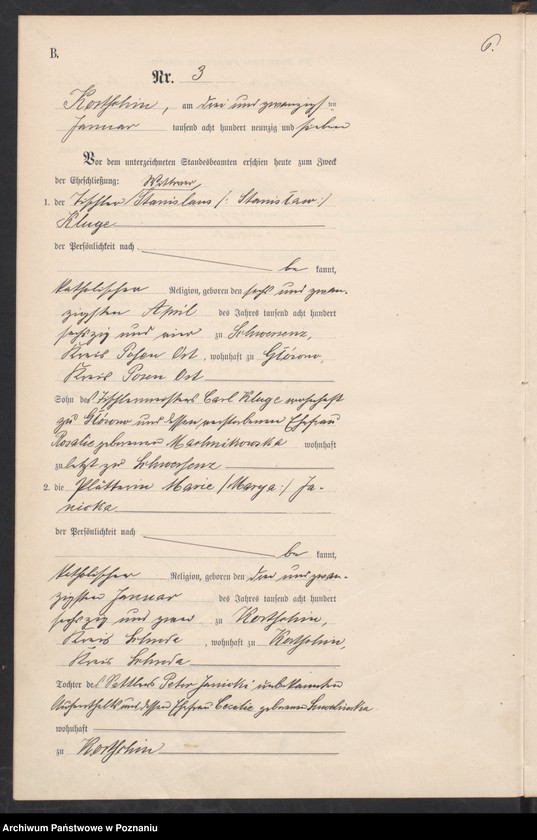 B.
6.
Nr. 3
Kostschin, am drei und zwanzigsten
Januar tausend acht hundert neunzig und sieben
Vor dem unterzeichneten Standesbeamten erschien heute zum Zweck
der Eheschließung: Wittwer,
1. der Tischler Stanislaus /: Stanisław :/
Kluge
der Persönlichkeit nach
be kannt,
katholischer Religion, geboren den sechs und zwan-
zigsten April des Jahres tausend acht hundert
sechszig und vier zu Schwersenz,
Kreis Posen Ost, wohnhaft zu Główno,
Kreis Posen Ost
Sohn des Tischlermeisters Carl Kluge wohnhaft
zu Główno und dessen verstorbenen Ehefrau
Rosalie geborenen wohnhaft
zuletzt zu Schwersenz
2. die Plätterin Marie /: Marya :/ Ja-
nicka
der Persönlichkeit nach
be kannt,
katholischer Religion, geboren den drei und zwan-
zigsten Januar des Jahres tausend acht hundert
sechszig und zwei zu Kostschin,
Kreis Schroda, wohnhaft zu Kostschin,
Kreis Schroda
Tochter des Sattlers Peter Janicki unbekannten
Aufenthalts und dessen Ehefrau Cecilie geborenen
wohnhaft
zu Kostschin
Archiwum Państwowe w Poznaniu